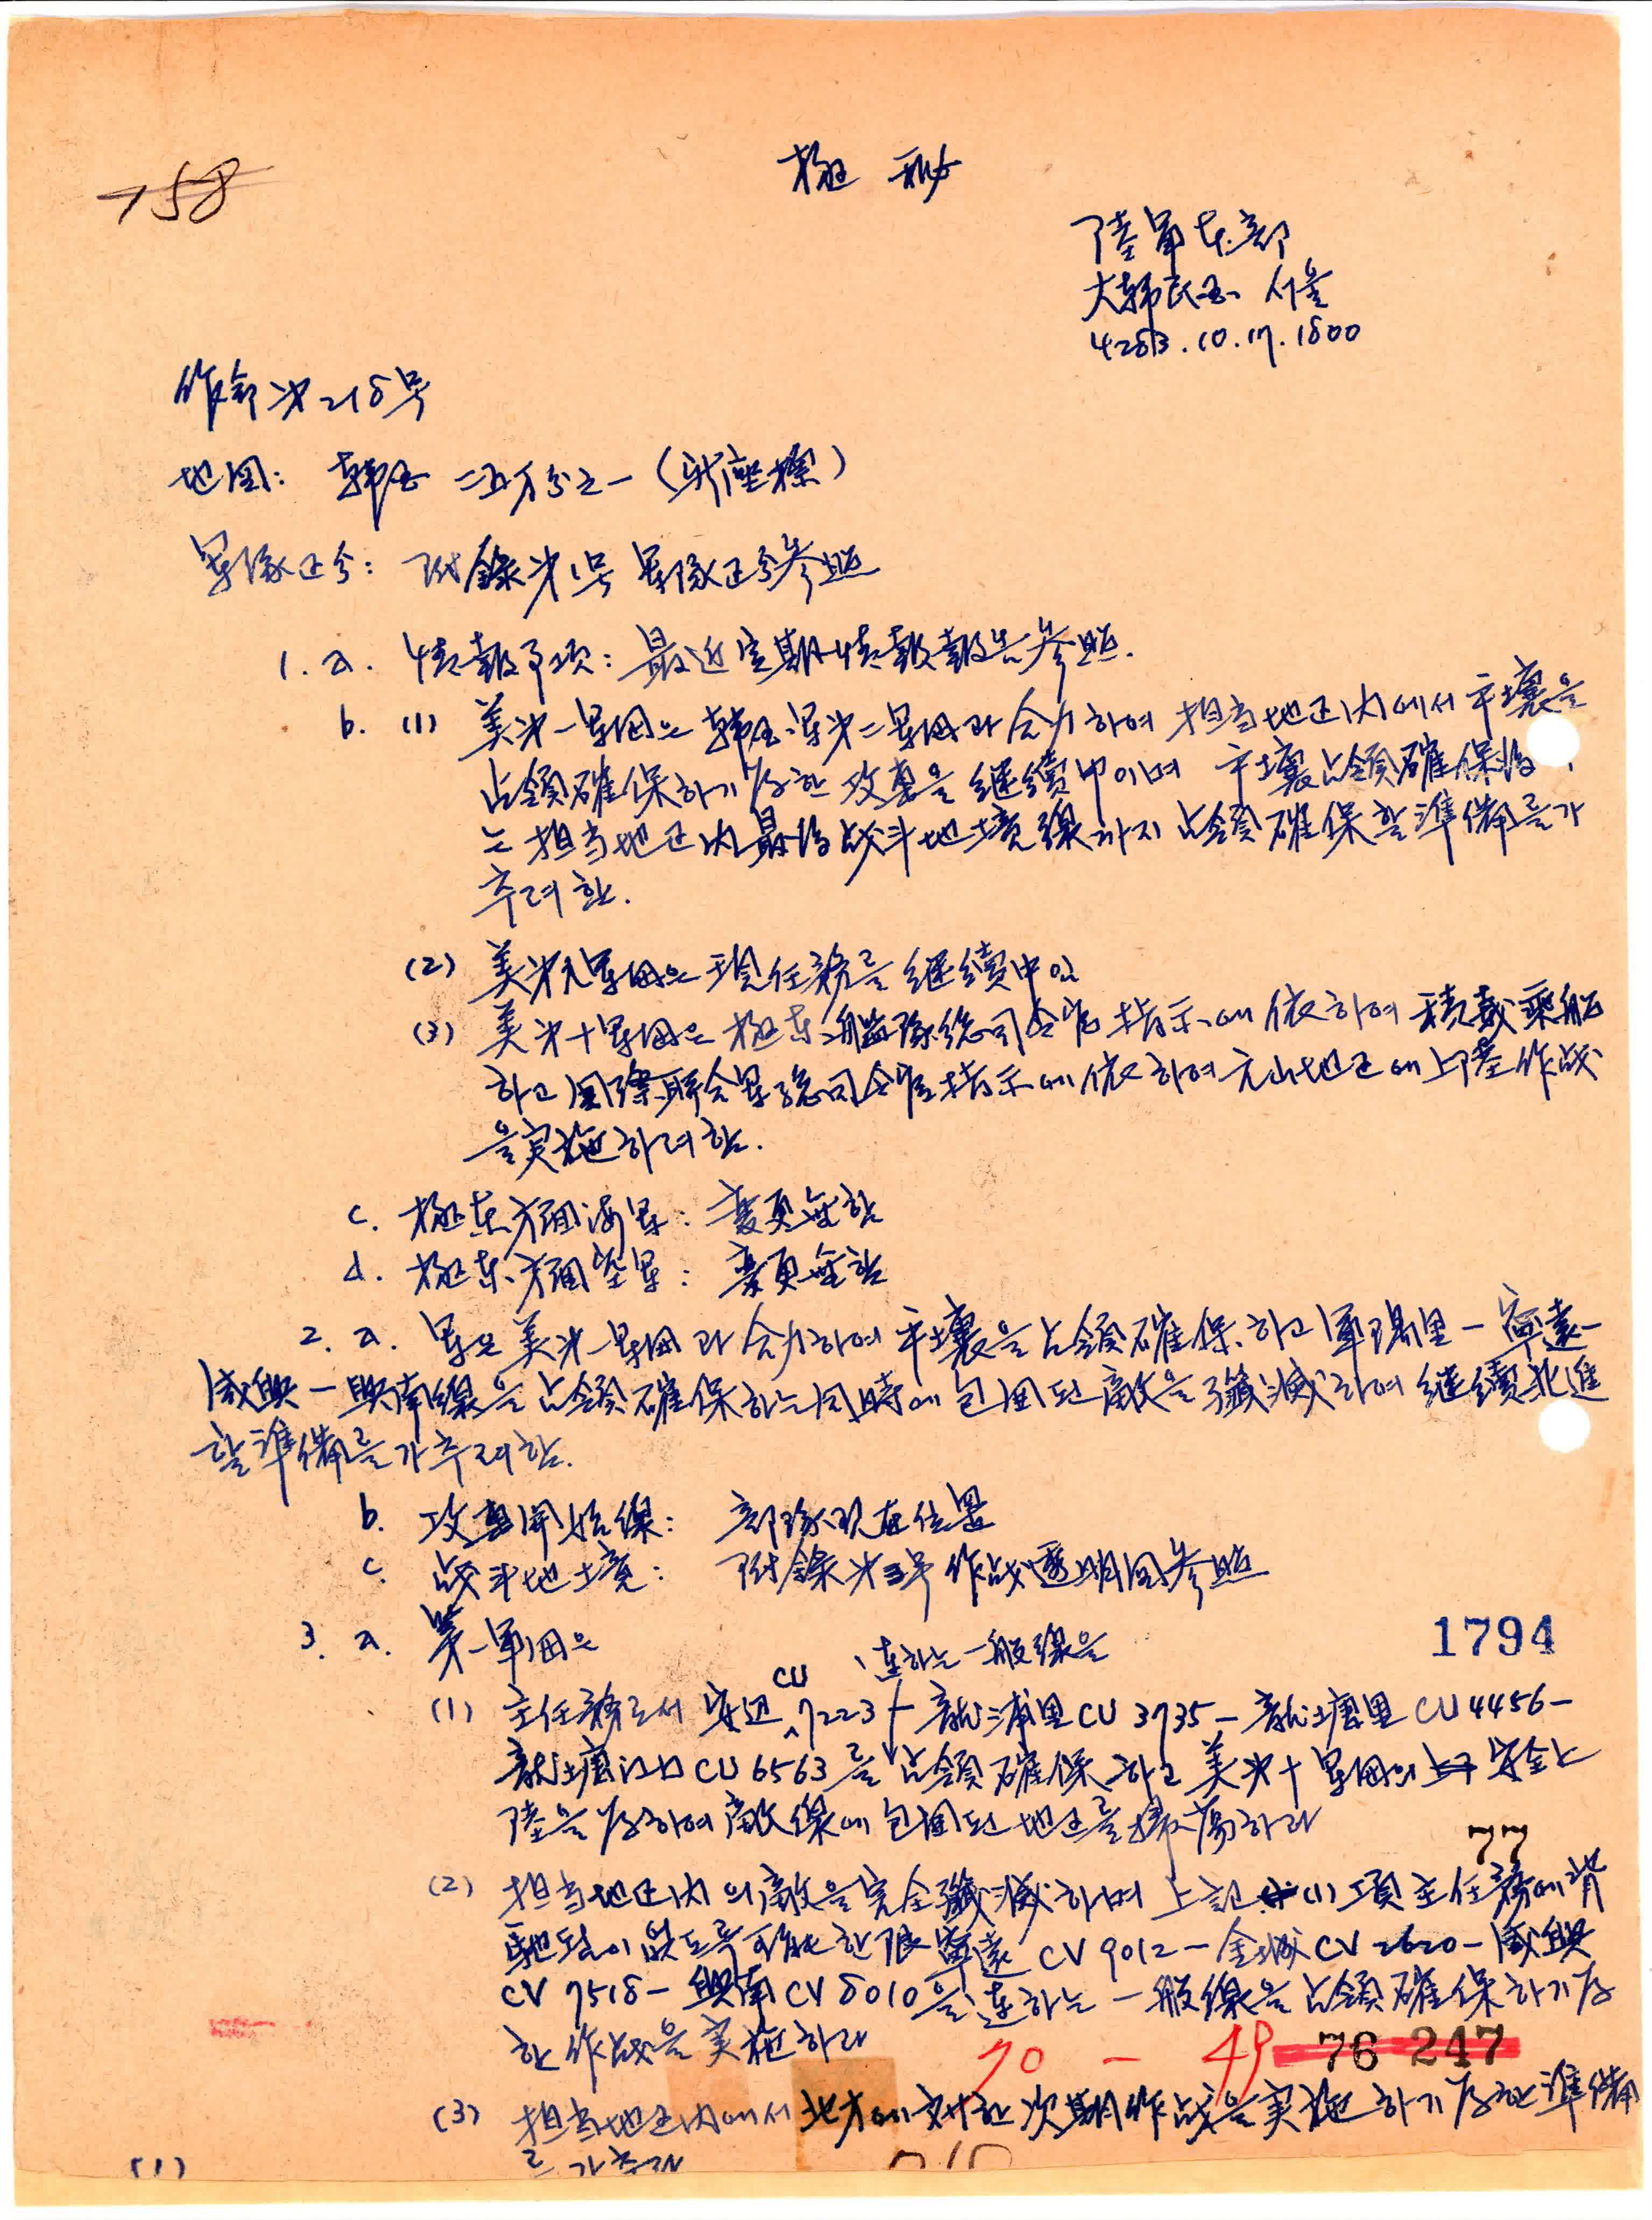 758
極秘
陸軍本部
大韓民国 서울
4283.10.17.1800
作命第218号
地図: 韓国 二五万分之一 (新座標)
軍隊区分: 附録第1号 軍隊区分参照
1. a. 情報事項: 最近定期情報報告参照.
b. (1) 美第一軍団은 韓国軍第二軍団과 合力하여 担当地区内에서 平壤을
占領確保하기 爲한 攻撃을 継続中이며 平壤占領確保後
는 担当地区内最後战斗地境線까지 占領確保할 準備를 가
추려함.
(2) 美第九軍団은 現任務를 継続中임
(3) 美第十軍団은 極東海艦隊総司令官 指示에 依하여 積載乗船
하고 国際聯合軍総司令官指示에 依하여 元山地区에 上陸作战
을 実施하려함.
c. 極東方面海軍: 変更無함
d. 極東方面空軍: 変更無함
2. a. 軍은 美第一軍団과 合力하여 平壤을 占領確保하고 軍隅里-寧遠-
咸興-興南線을 占領確保하는 同時에 包囲된 敵을 殲滅하여 継続北進
할 準備를 가추려함.
b. 攻撃開始線: 部隊現在位置
c. 战斗地境: 附録第3号 作战透明図参照
3. a. 第一軍団은
1794
CU 連하는 一般線을
(1) 主任務로서 安辺 7223-龍浦里 CU 3735-龍塘里 CU 4456-
龍塘江口 CU 6563를 占領確保하고 美第十軍団의 安全上
陸을 爲하여 敵線에 包囲된 地区를 掃蕩하라
77
(2) 担当地区内의 敵을 完全殲滅하며 上記 (1)項 主任務에 背
馳됨이 없도록 可能한限 寧遠 CV 9012-金城 CV 2620-咸興
CV 7518-興南 CV 8010을 連하는 一般線을 占領確保하기 爲
한 作战을 実施하라
70 - 49 76 247
(3) 担当地区内에서 北方에 対한 次期作战을 実施하기 爲한 準備
를 가추라
(1)